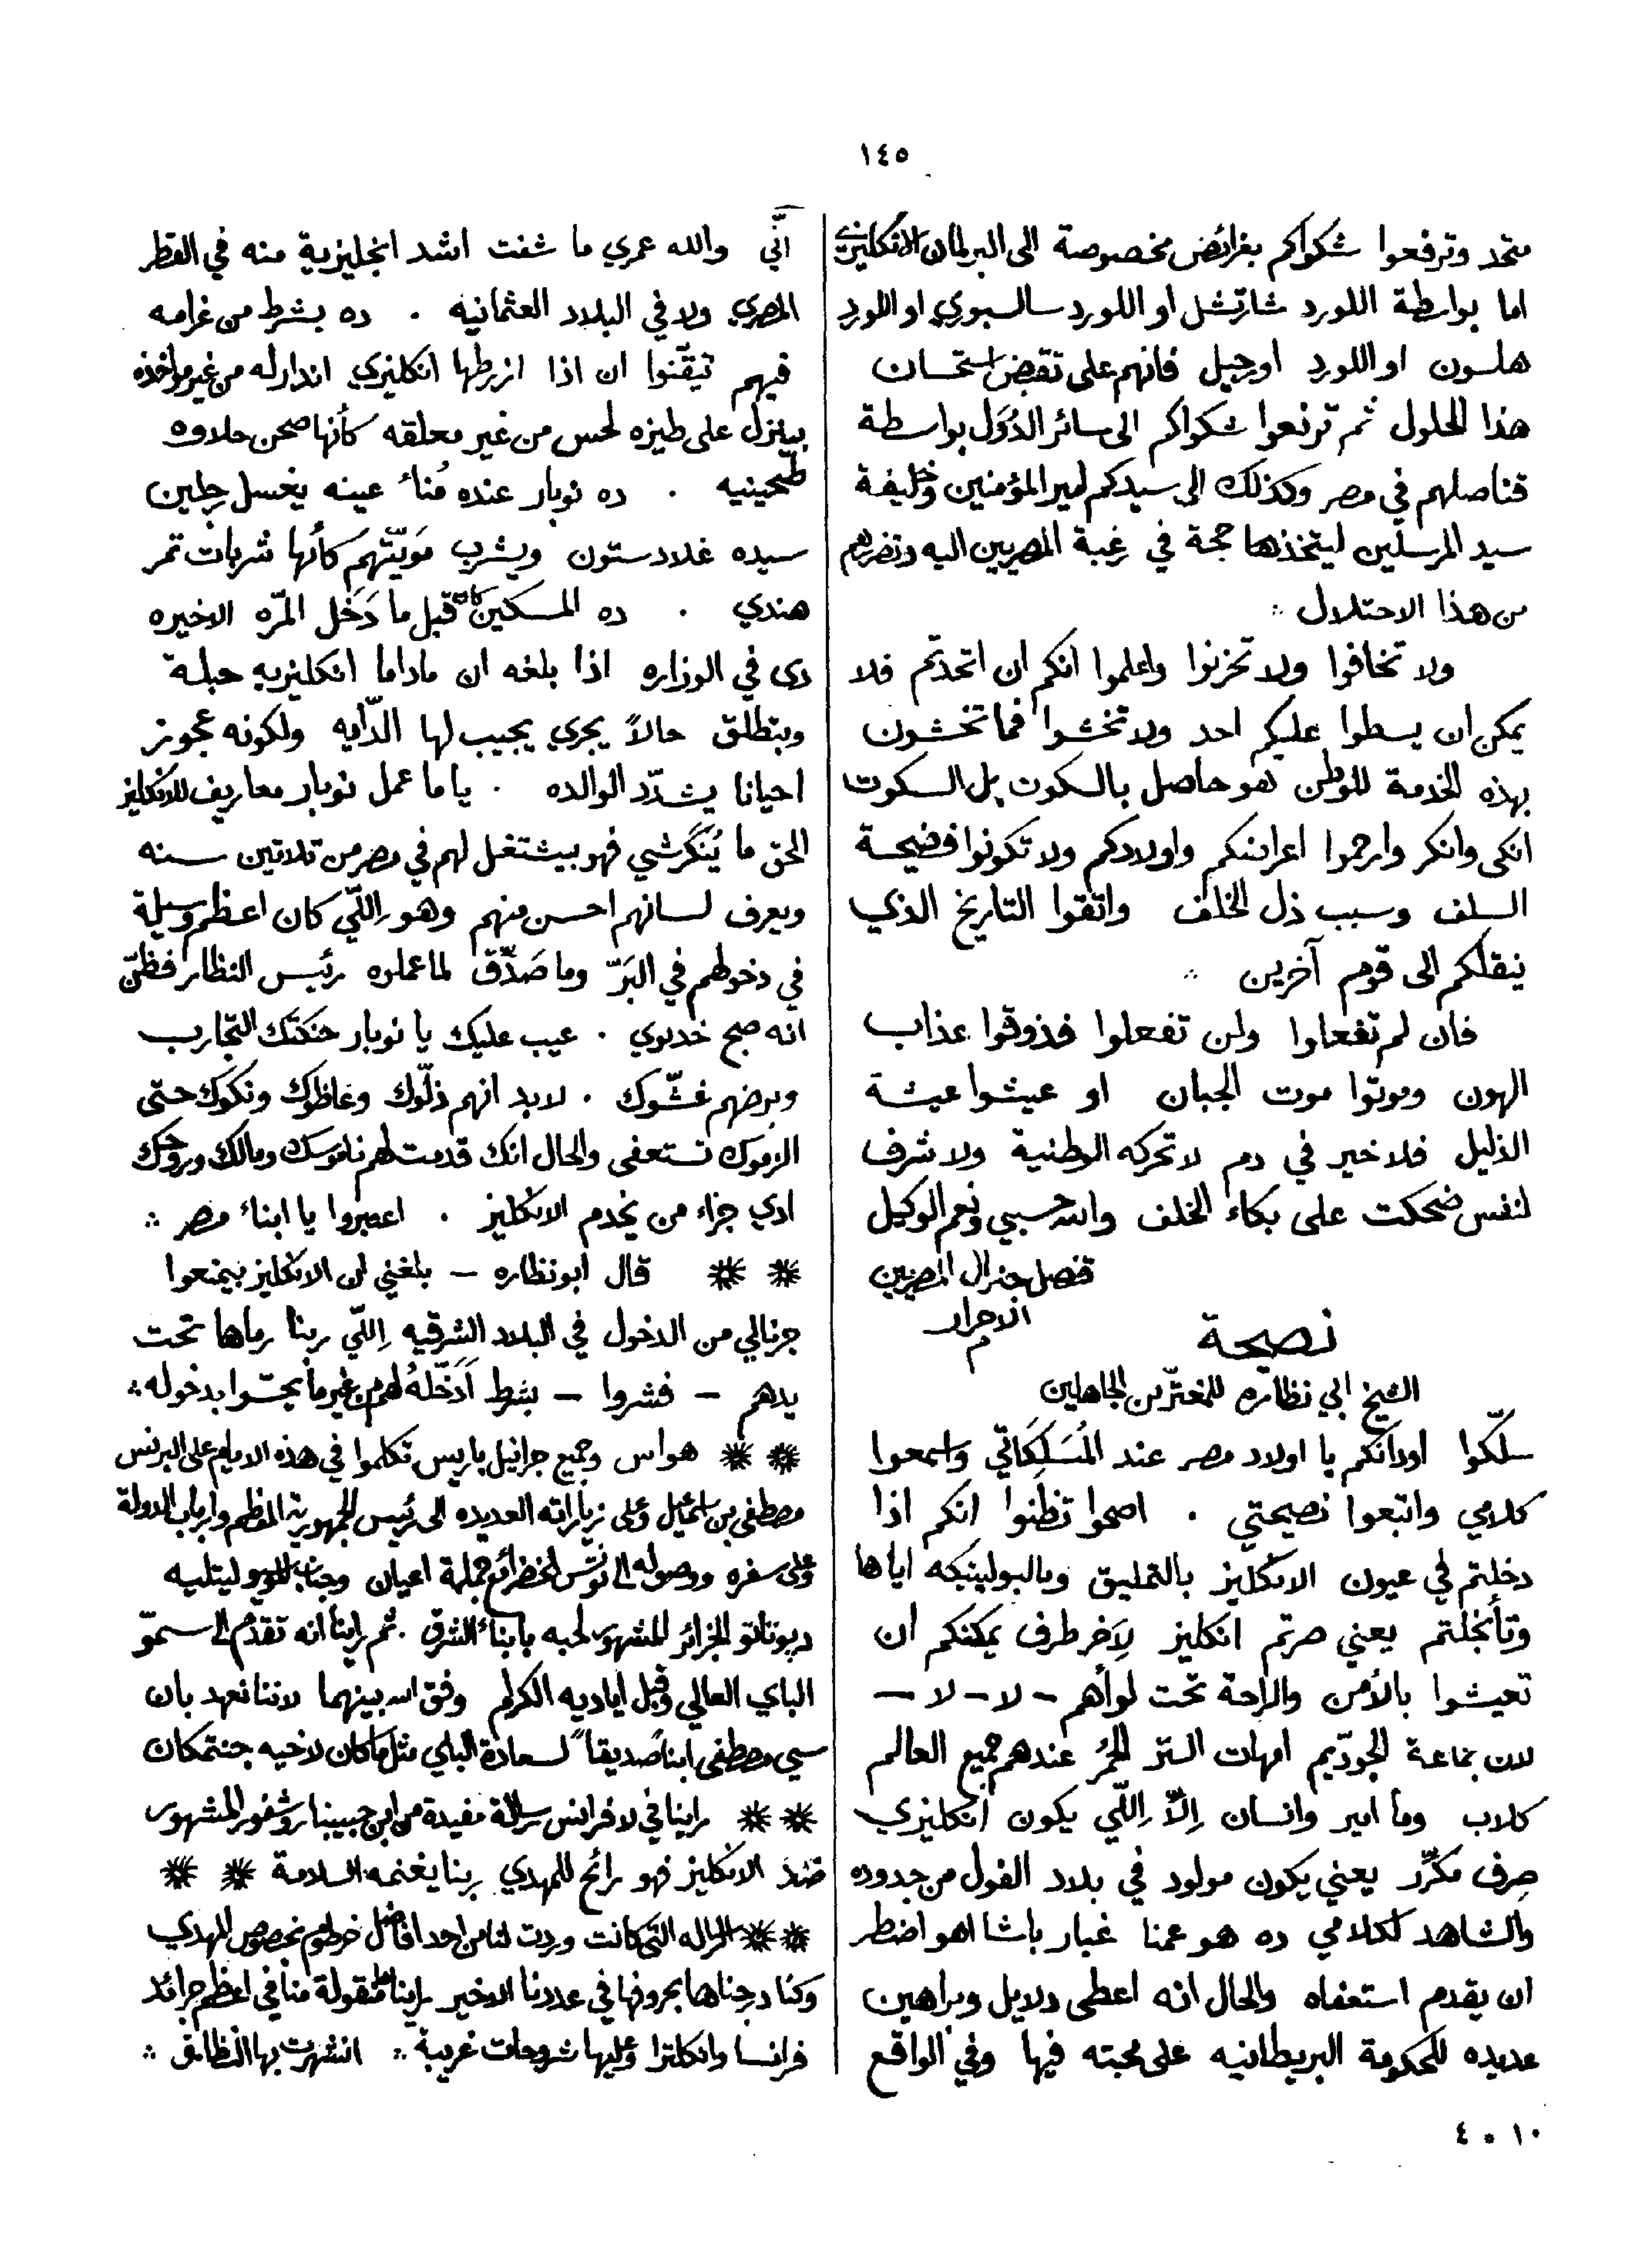 ١٤٥
متحد وترفعوا شكواكم بغرائض مخصوصة الى البرلمان الانكليزي
اما بواسطة اللورد شارتشل او اللورد سالسبوري او اللورد
هلسون او اللورد اوجيل فانهم على نقيض استحسان
هذا الحلول ثم ترفعوا شكواكم الى سائر الدُوَل بواسطة
قناصلهم في مصر وكذلك الى سيدكم امير المؤمنين وخليفة
سيد المرسلين ليتخذها حجة في رغبة المصريين اليه وتضررهم
من هذا الاحتلال ∴
ولا تخافوا ولا تحزنوا واعلموا انكم ان اتحدتم فلا
يمكن ان يسطوا عليكم احد ولا تخشوا فما تخشون
بهذه الخدمة للوطن هو حاصل بالسكوت بل السكوت
انكى وانكر وارحموا اعراضكم واولادكم ولا تكونوا فضيحة
السلف وسبب ذل الخلف واتقوا التاريخ الذي
ينقلكم الى قوم آخرين ∴
فان لم تفعلوا ولن تفعلوا فذوقوا عذاب
الهون وموتوا موت الجبان او عيشوا عيشة
الذليل فلا خير في دم لا تحركه الوطنية ولا شرف
لنفس ضحكت على بكاء الخلف والله حسبي ونعم الوكيل
قنصل جنرال المصريين
الاحرار
م
نصيحة
الشيخ ابي نظاره للمغترّين الجاهلين
سلّكوا اودانكم يا اولاد مصر عند المُسَلِكَاتي واسمعوا
كلامي واتبعوا نصيحتي . اصحوا تظنوا انكم اذا
دخلتم في عيون الانكليز بالتمليق وبالبوليتيكه اياها
وتأنجلتم يعني صرتم انكليز لآخر طرف يمكنكم ان
تعيشوا بالأمن والراحة تحت لوأهم - لا - لا -
لان جماعة الجودّيم امهات الستر الحُمُر عندهم جميع العالم
كلاب وما امير وانسان اِلاّ اِللّي يكون انكليزي
صِرف مكرَّر يعني يكون مولود في بلاد الفول من جدوده
والشاهد لكلامي ده هو عمنا غبار باشا اهو اضطر
ان يقدم استعفاه والحال انه اعطى دلايل وبراهين
عديده للحكومة البريطانيه على محبته فيها وفي الواقع
انّي والله عمري ما شفت اشد انجليزية منه في القطر
المصري ولا في البلاد العثمانيه . ده بشرط من غرامه
فيهم تيقّنوا ان اذا انكليزي اندار له من غير مواخذه
بينزل على طيزه لحس من غير معلقه كأنها صحن حلاوه
طحينيه . ده نوبار عنده مُناء عينه يغسل رجلين
سيده غلادستون ويشرب مَويّتهم كأنها شربات تمر
هندي . ده المسكين كان قبل ما دَخَل المرّه الاخيره
دى في الوزاره اذا بلغه ان ماداما انكليزيه حبلة
وبتطلق حالاً يجري يجيب لها الدّايه ولكونه عجوز
احيانا يشدّد الوالده . ياما عمل نوبار معاريف للانكليز
الحق ما يُنَكَرشي فهو بيشتغل لهم في مصر من تلاتين سنه
ويعرف لسانهم احسن منهم وهو اللّي كان اعظم وسيلة
في دخولهم في البَرّ وما صَدَّق لما عملوه رئيس النظار فظنّ
انه صبح خديوي . عيب عليك يا نوبار حنكتك التجارب
وبرضهم غشّوك . لابد انهم ذلّوك وغاظوك ونكوك حتى
الزموك تستعفى والحال انك قدمت لهم ناموسك ومالك وروحك
ادي جزاء من يخدم الانكليز . اعتبروا يا ابناء مصر ∴
❊ ❊ قال ابو نظاره - بلغني ان الانكليز بيمنعوا
جرنالي من الدخول في البلاد الشرقيه اِللّي ربنا رماها تحت
يدهم - فشروا - بشرط اَدَخّلهُ لهم من غير ما يحسّوا بدخوله ∴
❊ ❊ هواس وجميع جرانيل باريس تكلموا في هذه الايام على البرنس
مصطفى بن اسماعيل وعلى زياراته العديده الى رئيس الجمهورية المعظم وارباب الدولة
وعلى سفره ووصوله الى تونس الخضراء مع جملة اعيان وجناب الموسيو ليتليه
ديوتاتو الجزائر المشهور لحبه بابناء الشرق . ثم راينا انه تقدم الى سموّ
الباي العالي وقبل اياديه الكرام وفق الله بينهما لاننا نعهد بان
سي مصطفى ابناً صديقاً لسعادة الباي مثل ما كان لاخيه جنتمكان
❊ ❊ راينا في لافرانس رسالة مفيدة من ابن حبيبنا روشفور المشهور
ضد الانكليز فهو رائح للمهدي ربنا يغنمه السلامة ❊ ❊
❊ ❊ الرساله التي كانت وردت لنا من احد افاضل خرطوم بخصوص المهدي
وكنا درجناها بحروفها في عددنا الاخير راينا منقولة منا في اعظم جرائد
فرانسا وانكلترا وعليها شروحات غريبة ∴ انشهرت بها النظاره ∴
١٠ * ٤